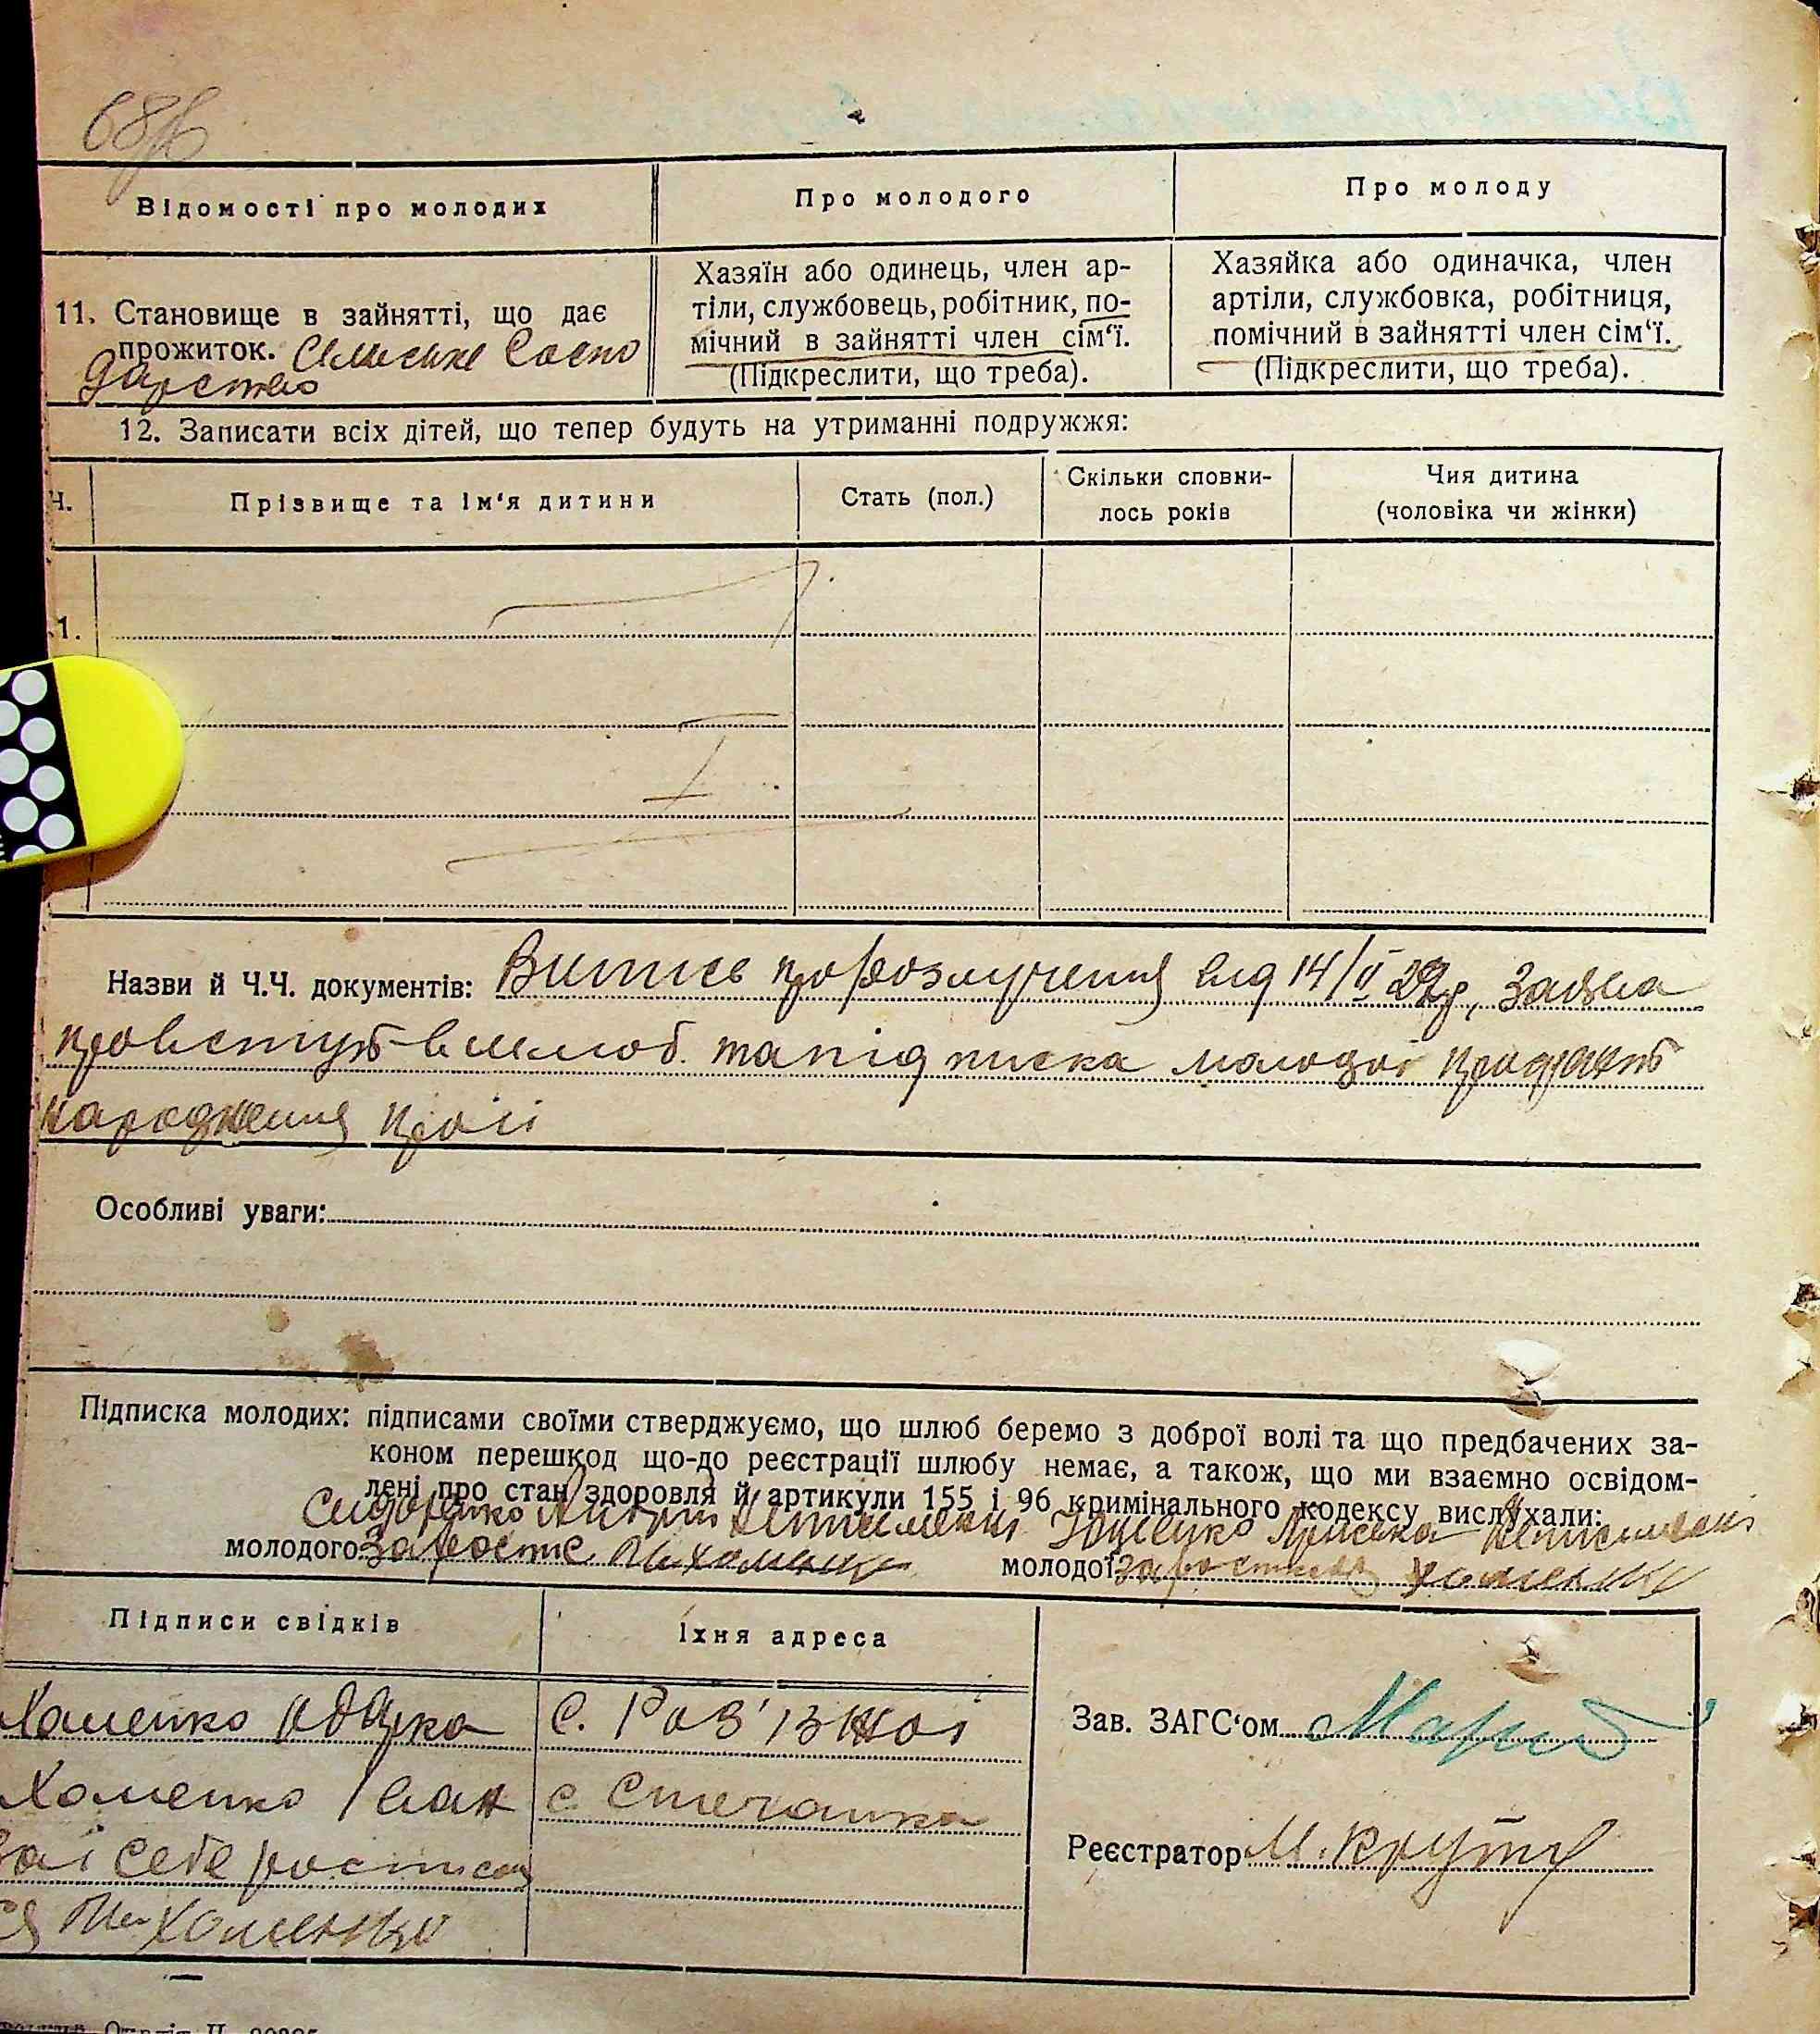 68
Відомості про молодих
Про молодого
Про молоду
11. Становище в зайнятті, що дає
прожиток. Сельське Госпо
дарство
Хазяїн або одинець, член ар-
тіли, службовець, робітник, по-
мічний в зайнятті член сім‘ї.
(Підкреслити, що треба).
Хазяйка або одиначка, член
артіли, службовка, робітниця,
помічний в зайнятті член сім‘ї.
(Підкреслити, що треба).
12. Записати всіх дітей, що тепер будуть на утриманні подружжя:
Ч.
Прізвище та ім‘я дитини
Стать (пол.)
Скільки сповни-
лось років
Чия дитина
(чоловіка чи жінки)
1.
Назви й Ч.Ч. документів: Витпсь про розлучення від 14/ІІ 29р, Заява
про вступ в шлюб. та підписка молодої про
народження
Особливі уваги:
Підписка молодих: підписами своїми стверджуємо, що шлюб беремо з доброї волі та що предбачених за-
коном перешкод що-до реєстрації шлюбу немає, а також, що ми взаємно освідом-
лені про стан здоровля й артикули 155 і 96 кримінального кодексу вислухали:
Сидоренко Юценко
молодого Хоменко
молодої Хоменко
Підписи свідків
Їхня адреса
Хоменко Одарка
с. Роз'їзжої
Хоменко Іван
с Стечанка
себе росписа
ся Хоменко
Зав. ЗАГС‘ом
Реєстратор М. Крут